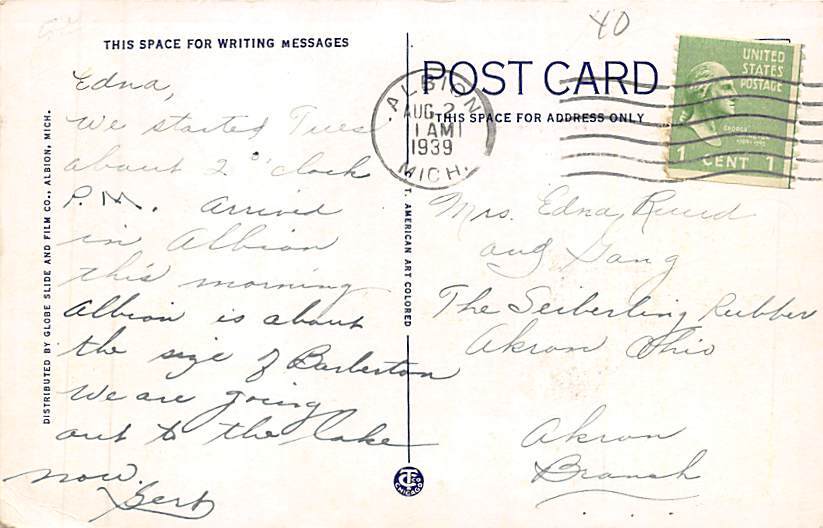 40
THIS SPACE FOR WRITING MESSAGES
Edna,
We started Tues
about 2 o'clock
P.M. arrived
in Albion
this morning
Albion is about
the size of Barberton
We are going
out to the lake
now.
Gert
DISTRIBUTED BY GLOBE SLIDE AND FILM CO., ALBION, MICH.
T. AMERICAN ART COLORED
CT CHICAGO
POST CARD
THIS SPACE FOR ADDRESS ONLY
ALBION
AUG 2
1 AM
1939
MICH.
UNITED
STATES
POSTAGE
GEORGE
1 CENT 1
Mrs. Edna
and Gang
The Seiberling Rubber
Akron Ohio
Akron
Branch